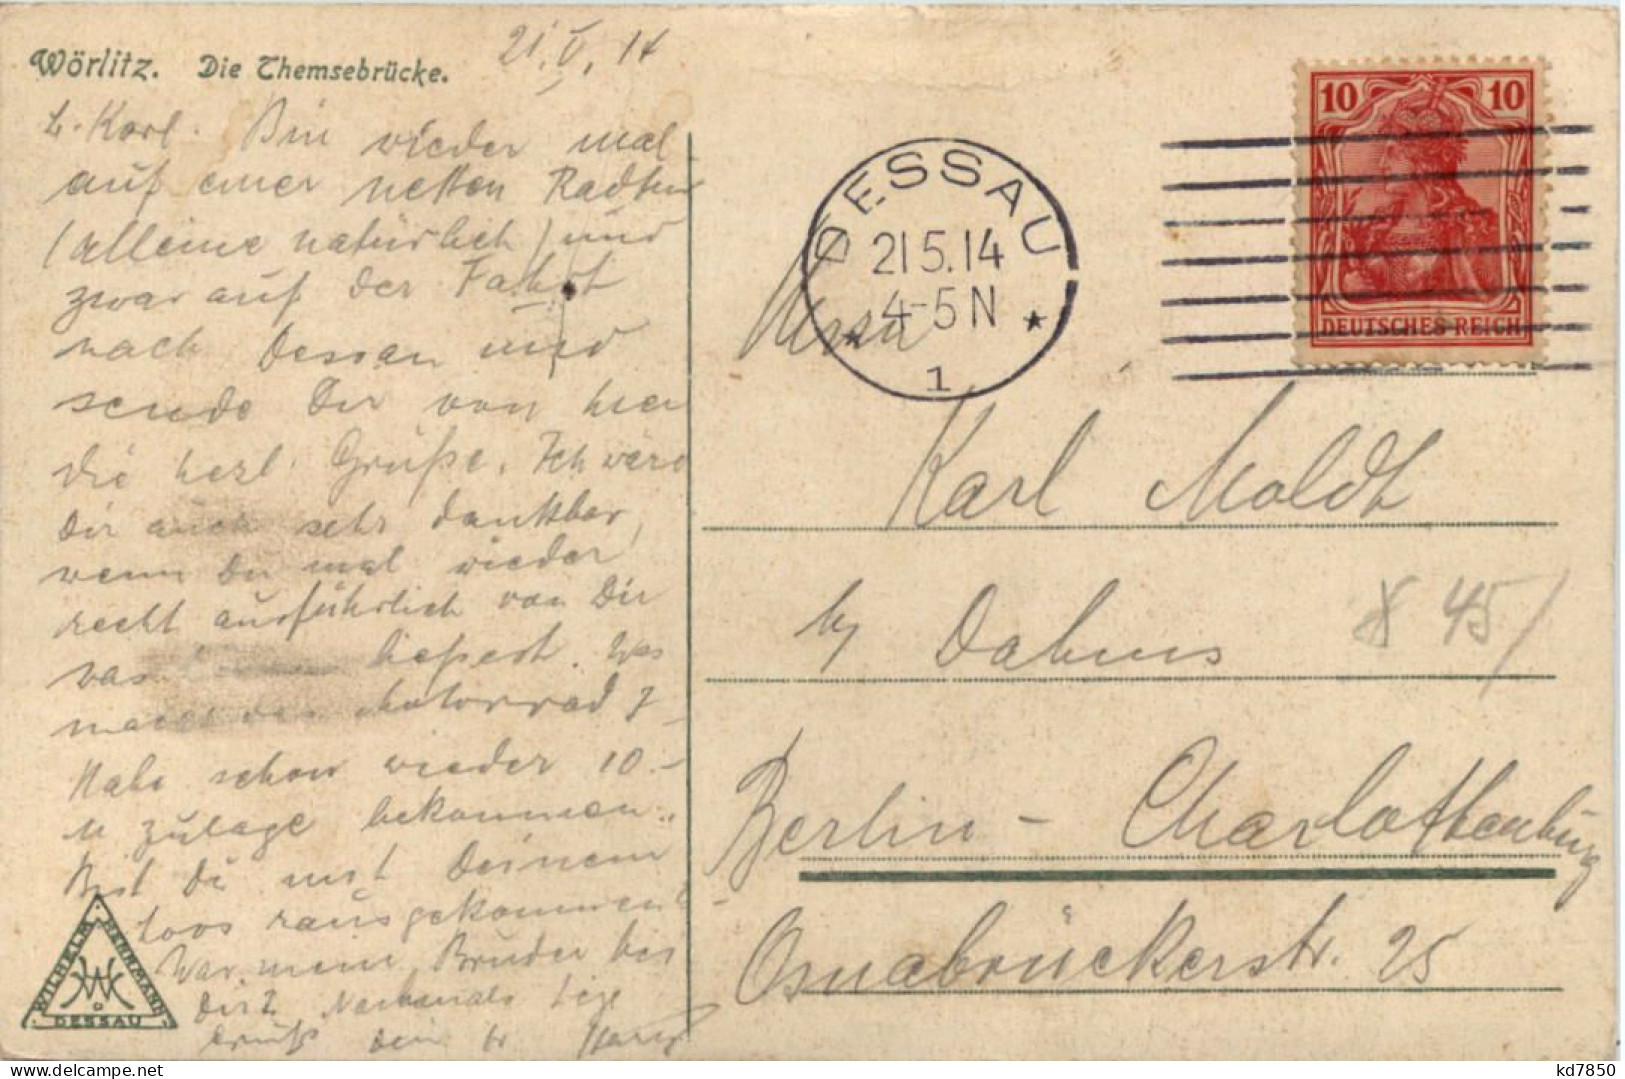 Wörlitz. Die Themsebrücke.
21.V.14
L. Karl. Bin wieder mal
auf einer netten Radtour
(alleine natürlich) und
zwar auf der Fahrt
nach Dessau und
sende Dir von hier
die herzl. Grüße. Ich werd
Dir auch sehr dankbar,
wenn Du mal wieder
recht ausführlich von Dir
was hießest. Was
macht das Motorrad?
Habe schon wieder 10.–
M Zulage bekommen.
Bist Du mit Deinem
Loos rausgekommen?
War mein Bruder bei
Dir? Nochmals
Gruß Dein Fr.
WILHELM HERRMANN
DESSAU
DESSAU
21 5.14
4-5 N
1
10 10
DEUTSCHES REICH
Herrn
Karl Moldt
b/ Dahms
45/
Berlin - Charlottenburg
Osnabrückerstr. 25
kd7850